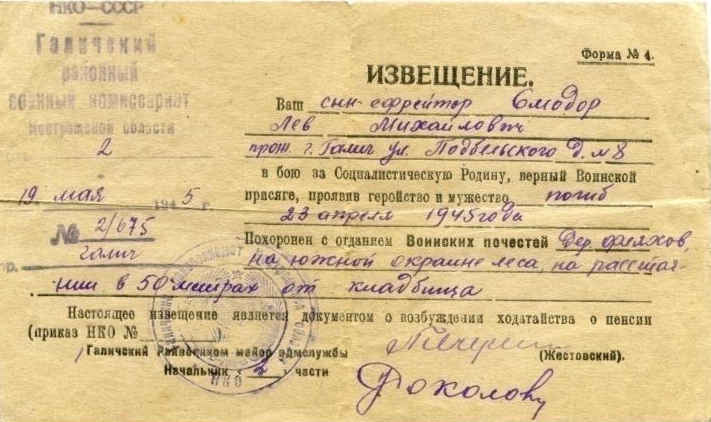 НКО—СССР
Галичский
районный
военный комиссариат
Костромской области
2
19 мая 1945 г
№ 2/675
Галич
Форма № 4.
ИЗВЕЩЕНИЕ.
Ваш сын-ефрейтор Смодор
Лев Михайлович
прож. г. Галич ул. Подбельского д. № 8
в бою за Социалистическую Родину, верный Воинской
присяге, проявив геройство и мужество погиб
23 апреля 1945 года
Похоронен с отданием Воинских почестей Дер.
на южной окраине леса, на расстоя-
нии в 50 метрах от кладбища
Настоящее извещение является документом о возбуждении ходатайства о пенсии
(приказ НКО №
Галичский Райвоенком майор адмслужбы
(Жестовский).
Начальник 2 части
НКО